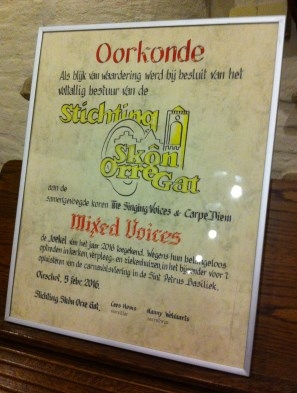 Oorkonde
Als blijk van waardering werd bij besluit van het
voltallig bestuur van de
Stichting
Skôn
Orre Gat
aan de
samengevoegde koren The Singing Voices & Carpe Diem
Mixed Voices
de Joekel van het jaar 2016 toegekend. Wegens hun belangeloos
optreden in kerken, verpleeg- en ziekenhuizen, in het bijzonder voor 't
opluisteren van de carnavalsviering in de Sint Petrus Basiliek.
Oirschot, 9 febr. 2016.
Stichting Skôn Orre Gat,